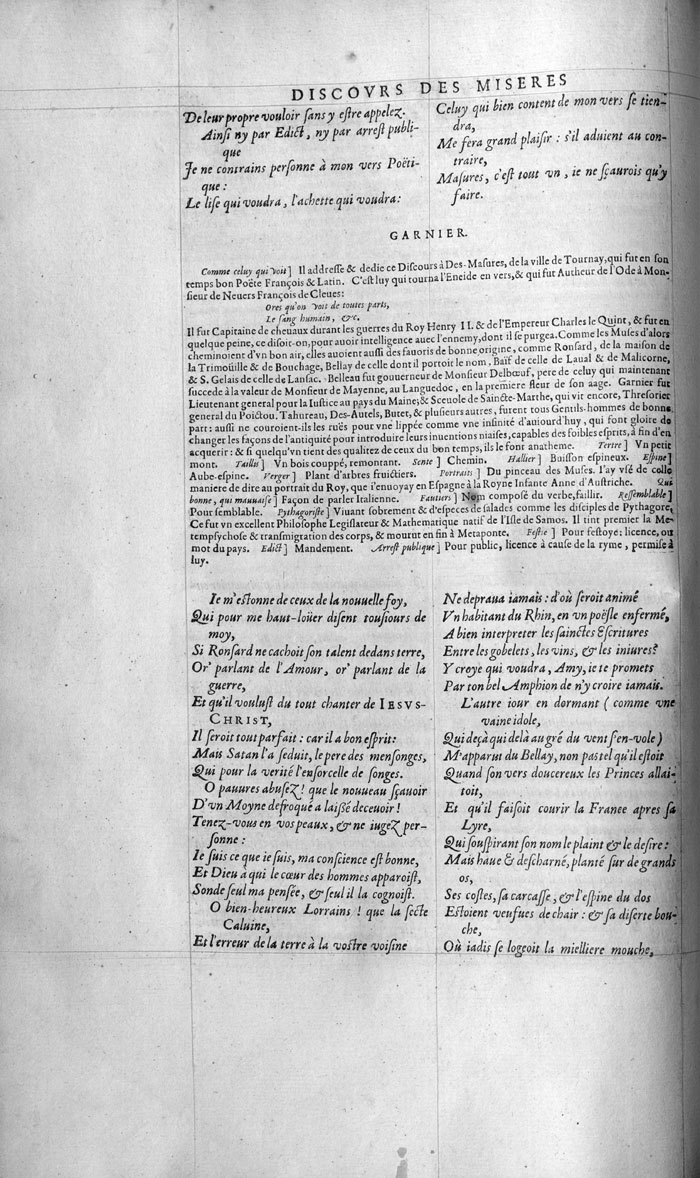 DISCOVRS DES MISERES
De leur propre vouloir sans y estre appelez.
Ainsi ny par Edict, ny par arrest publi-
que
Je ne contrains personne à mon vers Poëti-
que:
Le lise qui voudra, l'achette qui voudra:
Celuy qui bien content de mon vers se tien-
dra,
Me fera grand plaisir: s'il aduient au con-
traire,
Masures, c'est tout vn, ie ne sçaurois qu'y
faire.
GARNIER.
Comme celuy qui voit] Il addresse & dedie ce Discours à Des-Masures, de la ville de Tournay, qui fut en son
temps bon Poëte François & Latin. C'est luy qui tourna l'Eneide en vers, & qui fut Autheur de l'Ode à Mon-
sieur de Neuers François de Cleues:
Ores qu'on voit de toutes parts,
Le sang humain, &c.
Il fut Capitaine de cheuaux durant les guerres du Roy Henry II. & de l'Empereur Charles le Quint, & fut en
quelque peine, ce disoit-on, pour auoir intelligence auec l'ennemy, dont il se purgea. Comme les Muses d'alors
cheminoient d'vn bon air, elles auoient aussi des fauoris de bonne origine, comme Ronsard, de la maison de
la Trimoüille & de Bouchage, Bellay de celle dont il portoit le nom, Baïf de celle de Laual & de Malicorne,
& S. Gelais de celle de Lansac. Belleau fut gouuerneur de Monsieur Delbœuf, pere de celuy qui maintenant
succede à la valeur de Monsieur de Mayenne, au Languedoc, en la premiere fleur de son aage. Garnier fut
Lieutenant general pour la Iustice au pays du Maine, & Sceuole de Saincte-Marthe, qui vit encore, Thresorier
general du Poictou. Tahureau, Des-Autels, Butet, & plusieurs autres, furent tous Gentils-hommes de bonne
part: aussi ne couroient-ils les ruës pour vne lippée comme vne infinité d'auiourd'huy, qui font gloire de
changer les façons de l'antiquité pour introduire leurs inuentions niaises, capables des foibles esprits, à fin d'en
acquerir: & si quelqu'vn tient des qualitez de ceux du bon temps, ils le font anatheme. Tertre] Vn petit
mont. Taillis] Vn bois couppé, remontant. Sente] Chemin. Hallier] Buisson espineux. Espine]
Aube-espine. Verger] Plant d'arbres fruictiers. Portraits] Du pinceau des Muses. I'ay vsé de celle
maniere de dire au portrait du Roy, que i'enuoyay en Espagne à la Royne Infante Anne d'Austriche. Qui
bonne, qui mauuaise] Façon de parler Italienne. Fautiers] Nom composé du verbe, faillir. Ressemblable]
Pour semblable. Pythagoriste] Viuant sobrement & d'especes de salades comme les disciples de Pythagore,
Ce fut vn excellent Philosophe Legislateur & Mathematique natif de l'Isle de Samos. Il tint premier la Me-
tempsychose & transmigration des corps, & mourut en fin à Metaponte. Festie] Pour festoye: licence, ou
mot du pays. Edict] Mandement. Arrest publique] Pour public, licence à cause de la ryme, permise à
luy.
Ie m'estonne de ceux de la nouuelle foy,
Qui pour me haut-loüer disent tousiours de
moy,
Si Ronsard ne cachoit son talent dedans terre,
Or' parlant de l'Amour, or' parlant de la
guerre,
Et qu'il voulust du tout chanter de IESVS-
CHRIST,
Il seroit tout parfait: car il a bon esprit:
Mais Satan l'a seduit, le pere des mensonges,
Qui pour la verité l'ensorcelle de songes.
O pauures abusez! que le nouueau sçauoir
D'vn Moyne defroqué a laissé deceuoir!
Tenez-vous en vos peaux, & ne iugez per-
sonne:
Ie suis ce que ie suis, ma conscience est bonne,
Et Dieu à qui le cœur des hommes apparoist,
Sonde seul ma pensée, & seul il la cognoist.
O bien-heureux Lorrains! que la secte
Caluine,
Et l'erreur de la terre à la vostre voisine
Ne depraua iamais: d'où seroit animé
Vn habitant du Rhin, en vn poësle enfermé,
A bien interpreter les sainctes Escritures
Entre les gobelets, les vins, & les iniures?
Y croye qui voudra, Amy, ie te promets
Par ton bel Amphion de n'y croire iamais.
L'autre iour en dormant (comme vne
vaine idole,
Qui deçà qui delà au gré du vent s'en-vole)
M'apparut du Bellay, non pas tel qu'il estoit
Quand son vers doucereux les Princes allai-
toit,
Et qu'il faisoit courir la France apres sa
Lyre,
Qui souspirant son nom le plaint & le desire:
Mais haue & descharné, planté sur de grands
os,
Ses costes, sa carcasse, & l'espine du dos
Estoient veufues de chair: & sa diserte bou-
che,
Où iadis se logeoit la mielliere mouche,